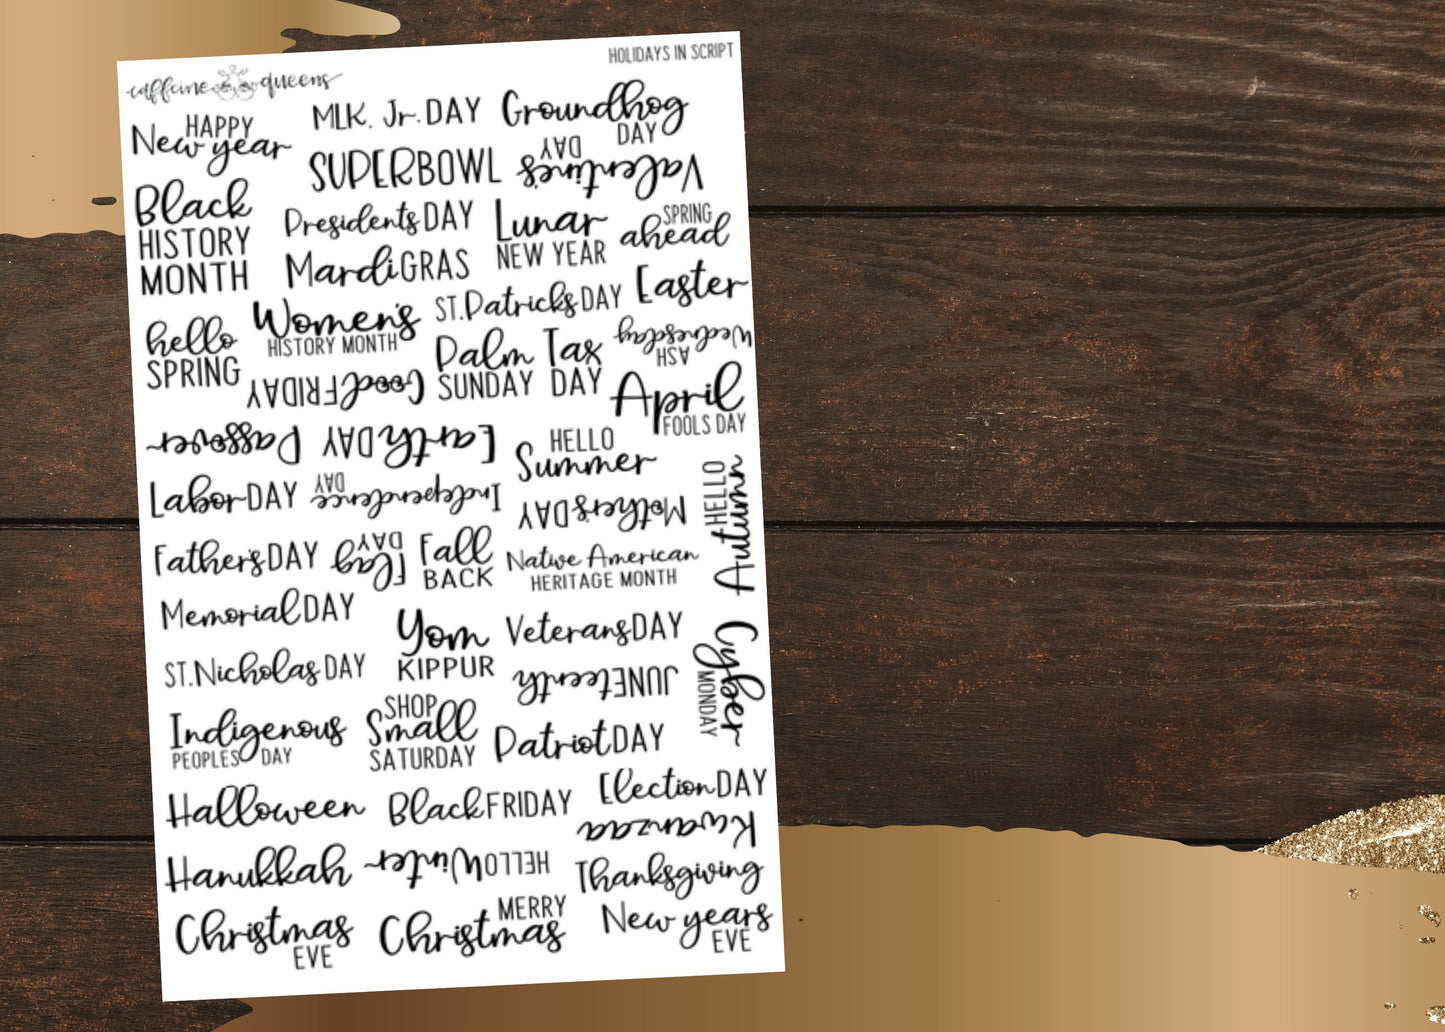 caffeine queens
HOLIDAYS IN SCRIPT
HAPPY
New year
MLK. Jr. DAY
Groundhog
DAY
SUPERBOWL
Valentine's
DAY
Black
HISTORY
MONTH
Presidents DAY
Lunar
NEW YEAR
SPRING
ahead
Mardi GRAS
hello
SPRING
Women's
HISTORY MONTH
ST. Patricks DAY
Easter
Palm
SUNDAY
Tax
DAY
ASH
Wednesday
Good FRIDAY
April
FOOLS DAY
Passover
Earth DAY
HELLO
Summer
HELLO
Autumn
Labor DAY
Independence
DAY
Mother's DAY
Father's DAY
Flag
DAY
Fall
BACK
Native American
HERITAGE MONTH
Memorial DAY
Yom
KIPPUR
Veterans DAY
Cyber
MONDAY
ST. Nicholas DAY
JUNEteenth
Indigenous
PEOPLES DAY
SHOP
Small
SATURDAY
Patriot DAY
Halloween
Black FRIDAY
Election DAY
Kwanzaa
Hanukkah
HELLO Winter
Thanksgiving
Christmas
EVE
MERRY
Christmas
New years
EVE